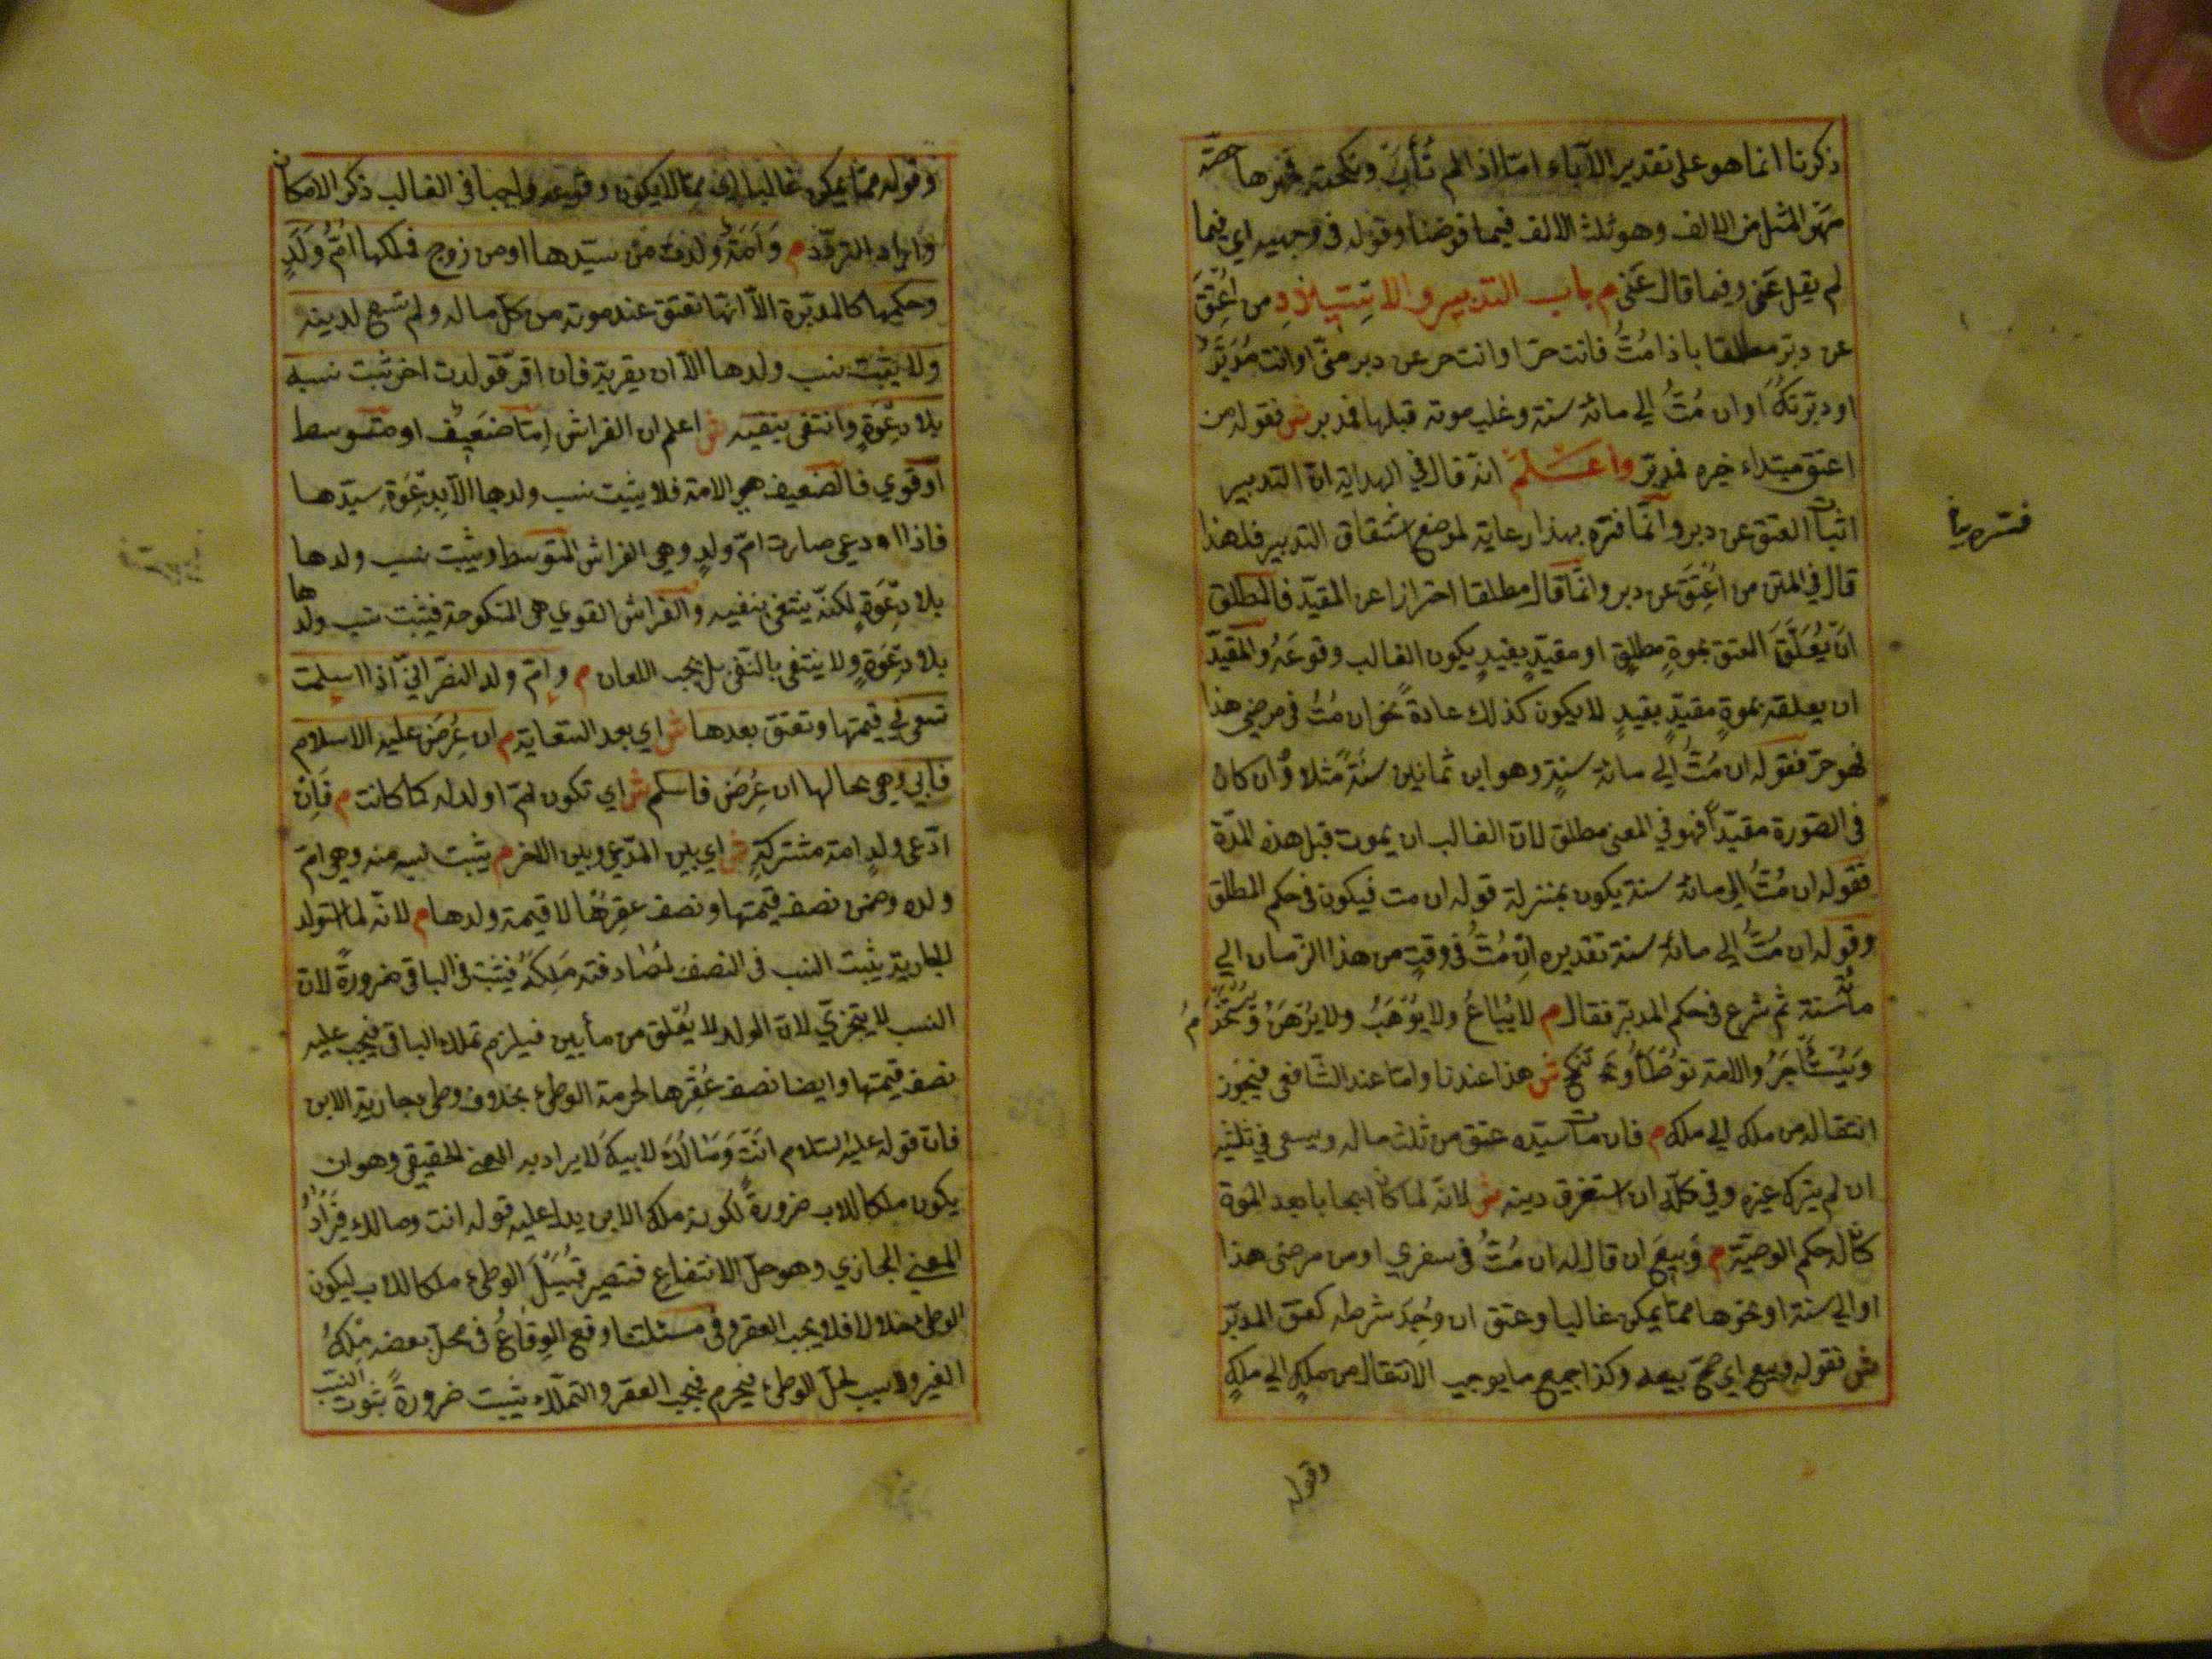 ذكرنا انما هو على تقدير الاباء امّا اذا لم تُأبَ ونكحته فمهرها حصّة
مَهر المثل من الالف وهو ثلث الالف فيما فرضنا وقوله في وجهيه اي فيما
لم يقل عَنّي وفيما قال عَنّي م باب التدبير والاستيلاد من اُعتِقَ
عن دبر مطلقا باذا مُتُّ فانت حرّا وانت حر عن دبر منّي او انت مُدَبَّر
او دبّرتكَ او ان مُتُّ الى مائة سنة وغلب موته قبلها فمدبر ش فقوله من
اعتق مبتداء خبره فمدبّر واعلم انه قال في الهداية ان التدبير
اثبات العتق عن دبر وانّما فسّره بهذا رعاية لموضع اشتقاق التدبير فلهذا
قال في المتن من اُعتِقَ عن دبر وانّما قال مطلقا احترازا عن المقيّد فالمطلق
ان يُعَلَّقَ العتق بموةٍ مطلقٍ او مقيّدٍ بقيدٍ يكون الغالب وقوعَهُ والمقيّد
ان يعلقه بموةٍ مقيّدٍ بقيدٍ لا يكون كذلك عادةً نحو ان متُّ في مرضي هذا
فهو حرّ فقوله ان مُتُّ الى مائة سنةٍ وهو ابن ثمانين سنةً مثلا وان كان
في الصّورة مقيّداً فهو في المعنى مطلق لان الغالب ان يموت قبل هذه المدّة
فقوله ان مُتُّ الى مائة سنة يكون بمنزلة قوله ان مت فيكون في حكم المطلق
وقوله ان متُّ الى مائة سنة تقديره اِن مُتُّ في وقتٍ من هذا الزمان الى
مأة سنة ثم شرع في حكم المدبّر فقال م لا يُباعُ ولا يوهَبُ ولا يُرهَنُ ويُستَخدَمُ
ويُستأجَرُ والامة توطأُ وتُنكح ش هذا عندنا وامّا عند الشّافعي فيجوز
انتقاله من ملك الى ملك م فان مات سيّده عتق من ثلث ماله ويسعى في ثلثيه
ان لم يترك غيره وفي كلّه ان استغرق دينه ش لانه لما كان ايجابا بعد الموة
كان له حكم الوصيّة م وبيعَ ان قال له ان مُتُّ في سفري او من مرضي هذا
او الى سنة او نحوها ممّا يمكن غالبا وعتق ان وُجِدَ شرطه كعتق المدبّر
ش فقوله وبيع اي صحّ بيعه وكذا جميع ما يوجب الانتقال من ملكٍ الى ملكٍ
وقوله
فسّره بها
وقوله ممّا يمكن غالبا اي ممّا لا يكون وقوعه واجبا في الغالب ذكر الامكان
واراد التردّد م وَاَمَةٌ ولدت من سيّدها او من زوج فملكها اُمُّ وَلَدٍ
وحكمها كالمدبّرة الّا انّها تعتق عند موته من كلّ ماله ولم تسع لدينه
ولا يثبت نسب ولدها الّا ان يقر به فان اقرّ فولدت اخر ثبت نسبه
بلا دِعوَةٍ وانتفى بنفيه ش اعلم ان الفراش اِمّا ضعيف او متوسط
او قوي فالضعيف هي الامة فلا يثبت نسب ولدها الّا بدِعوَةِ سيّدها
فاذا ادعى صارت امّ ولدٍ وهي الفراش المتوسط ويثبت نسب ولدها
بلا دِعوَةٍ لكنّه ينتفى بنفيه والفراش القوي هي المنكوحة فيثبت نسب ولدها
بلا دِعوَةٍ ولا ينتفى بالنّفي بل يجب اللعان م وامّ ولد النصرانيّ اذا اسلمت
تسعى في قيمتها وتعتق بعدها ش اي بعد السّعاية م ان عُرِضَ عليه الاسلام
فابى وهي بحالها ان عُرِضَ فاسلم ش اي تكون امّ ولد له كما كانت م فاِن
ادّعى ولدٍ امة مشتركةٍ ش اي بين المدّعي وبين الاخر م يثبت نسبه منه وهي امّ
ولده وضمن نصف قيمتها ونصف عقرها لا قيمة ولدها م لانّه لما استولد
الجارية يثبت النسب في النصف لمُصادفته مَلِكَهُ فيثبت في الباقي ضرورةً لان
النسب لا يتجزّي لان الولد لا يُعلق من مأيين فيلزم تملك الباقي فيجب عليه
نصف قيمتها وايضا نصف عُقرها لحرمة الوطئ بخلاف وطى جارية الابن
فان قوله عليه السّلام انتَ ومالُكَ لابيكَ لا يراد به المعنى الحقيقي وهو ان
يكون ملكا للاب ضرورةً لكونه ملك الابن يدل عليه قوله انت ومالك فيُرادُ
المعنى المجازي وهو حل الانتفاع فتصير قُبَيلَ الوطئ ملكا للاب ليكون
الوطئ حلالا فلا يجب العقر وفي مسئلتنا وقع الوِقاعُ في محلّ بعضه مِلكُ
الغير ولا سبب لحل الوطئ فيحرم فيجب العقر والتملّك يثبت ضرورةً ثبوت النسب